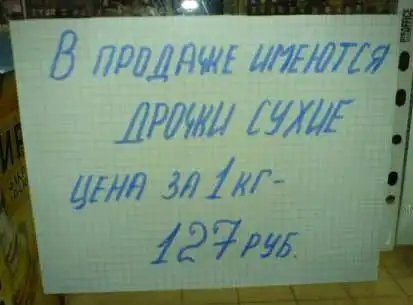 В ПРОДАЖЕ ИМЕЮТСЯ
ДРОЧКИ СУХИЕ
ЦЕНА ЗА 1 КГ-
127 РУБ.